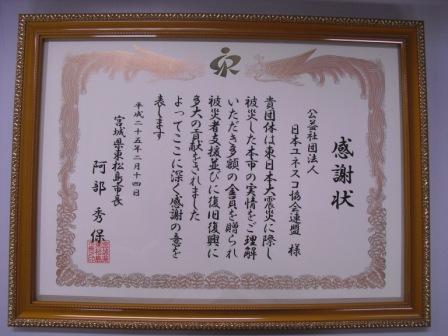 感謝状
公益社団法人
日本ユネスコ協会連盟 様
貴団体は東日本大震災に際し
被災した本市の実情をご理解
いただき多額の金員を贈られ
被災者支援並びに復旧復興に
多大の貢献をされました
よってここに深く感謝の意を
表します
平成二十五年二月十四日
宮城県東松島市長
阿部 秀保